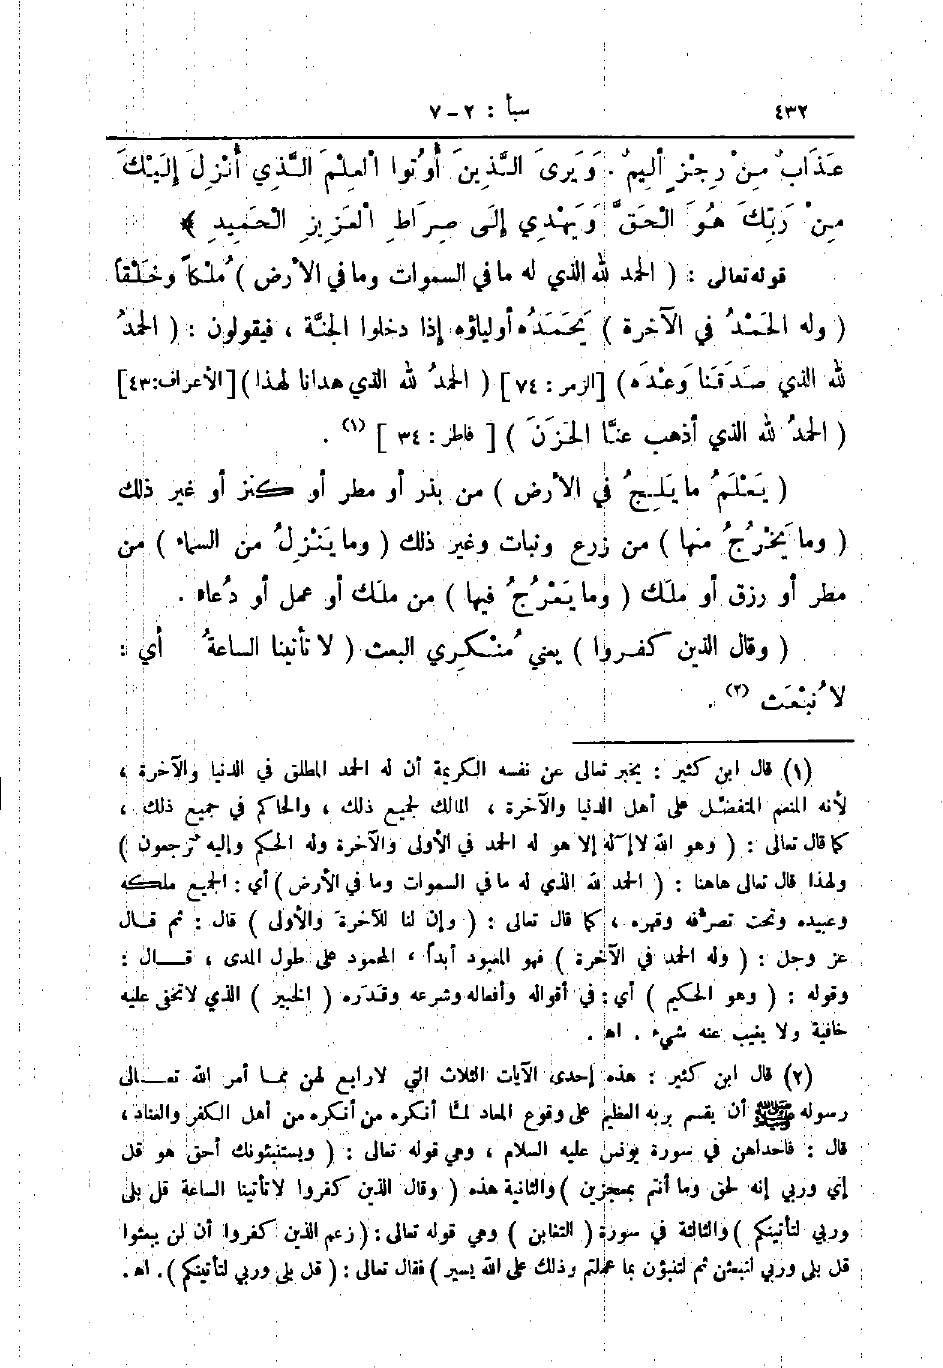 ٤٣٢ سبأ : ٢ – ٧
عَذَابٌ مِنْ رِجْزٍ أَلِيمٌ . وَيَرَى الَّذِينَ أُوتُوا الْعِلْمَ الَّذِي أُنْزِلَ إِلَيْكَ
مِنْ رَبِّكَ هُوَ الْحَقَّ وَيَهْدِي إِلَى صِرَاطِ الْعَزِيزِ الْحَمِيدِ ﴾
قوله تعالى : ( الحمد لله الذي له ما في السموات وما في الأرض ) مُلْكاً وخَلْقاً
( وله الحَمْدُ في الآخرة ) يَحْمَدُه أولياؤه إذا دخلوا الجنَّة ، فيقولون : ( الحمدُ
لله الذي صَدَقَنا وَعْدَه ) [ الزمر : ٧٤ ] ( الحمدُ لله الذي هدانا لهذا ) [الأعراف:٤٣]
( الحمدُ لله الذي أذهب عنَّا الحَزَنَ ) [ فاطر : ٣٤ ] (١) .
( يَعْلَمُ ما يَلِجُ في الأرض ) من بذر أو مطر أو كنز أو غير ذلك
( وما يَخْرُجُ منها ) من زرع ونبات وغير ذلك ( وما يَنْزِلُ من السماء ) من
مطر أو رزق أو ملَك ( وما يَعْرُجُ فيها ) من ملَك أو عمل أو دُعاء .
( وقال الذين كفروا ) يعني مُنْكِري البعث ( لا تأتينا الساعةُ أي :
لا نُبْعَث (٢) .
(١) قال ابن كثير : يخبر تعالى عن نفسه الكريمة أن له الحمد المطلق في الدنيا والآخرة ،
لأنه المنعم المتفضّل على أهل الدنيا والآخرة ، المالك لجميع ذلك ، والحاكم في جميع ذلك ،
كما قال تعالى : ( وهو الله لا إلٰه إلا هو له الحمد في الأولى والآخرة وله الحكم وإليه تُرجعون )
ولهذا قال تعالى هاهنا : ( الحمد لله الذي له ما في السموات وما في الأرض ) أي : الجميع ملكه
وعبيده وتحت تصرّفه وقهره ، كما قال تعالى : ( وإن لنا للآخرةَ والأولى ) قال : ثم قال
عز وجل : ( وله الحمد في الآخرة ) فهو المعبود أبداً ، المحمود على طول المدى ، قــال :
وقوله : ( وهو الحكيم ) أي : في أقواله وأفعاله وشرعه وقَدَره ( الخبير ) الذي لا تخفى عليه
خافية ولا يغيب عنه شيء . اهـ .
(٢) قال ابن كثير : هذه إحدى الآيات الثلاث التي لا رابع لهن مما أمر الله تعــالى
رسوله ﷺ أن يقسم بربه العظيم على وقوع المعاد لمّا أنكره من أنكره من أهل الكفر والعناد ،
قال : فاحداهن في سورة يونس عليه السلام ، وهي قوله تعالى : ( ويستنبئونك أحق هو قل
إي وربي إنه لحق وما أنتم بمعجزين ) والثانية هذه ( وقال الذين كفروا لا تأتينا الساعة قل بلى
وربي لتأتينكم ) والثالثة في سورة ( التغابن ) وهي قوله تعالى : ( زعم الذين كفروا أن لن يبعثوا
قل بلى وربي لتبعثن ثم لتنبؤن بما عملتم وذلك على الله يسير ) فقال تعالى : ( قل بلى وربي لتأتينكم ) . اهـ .